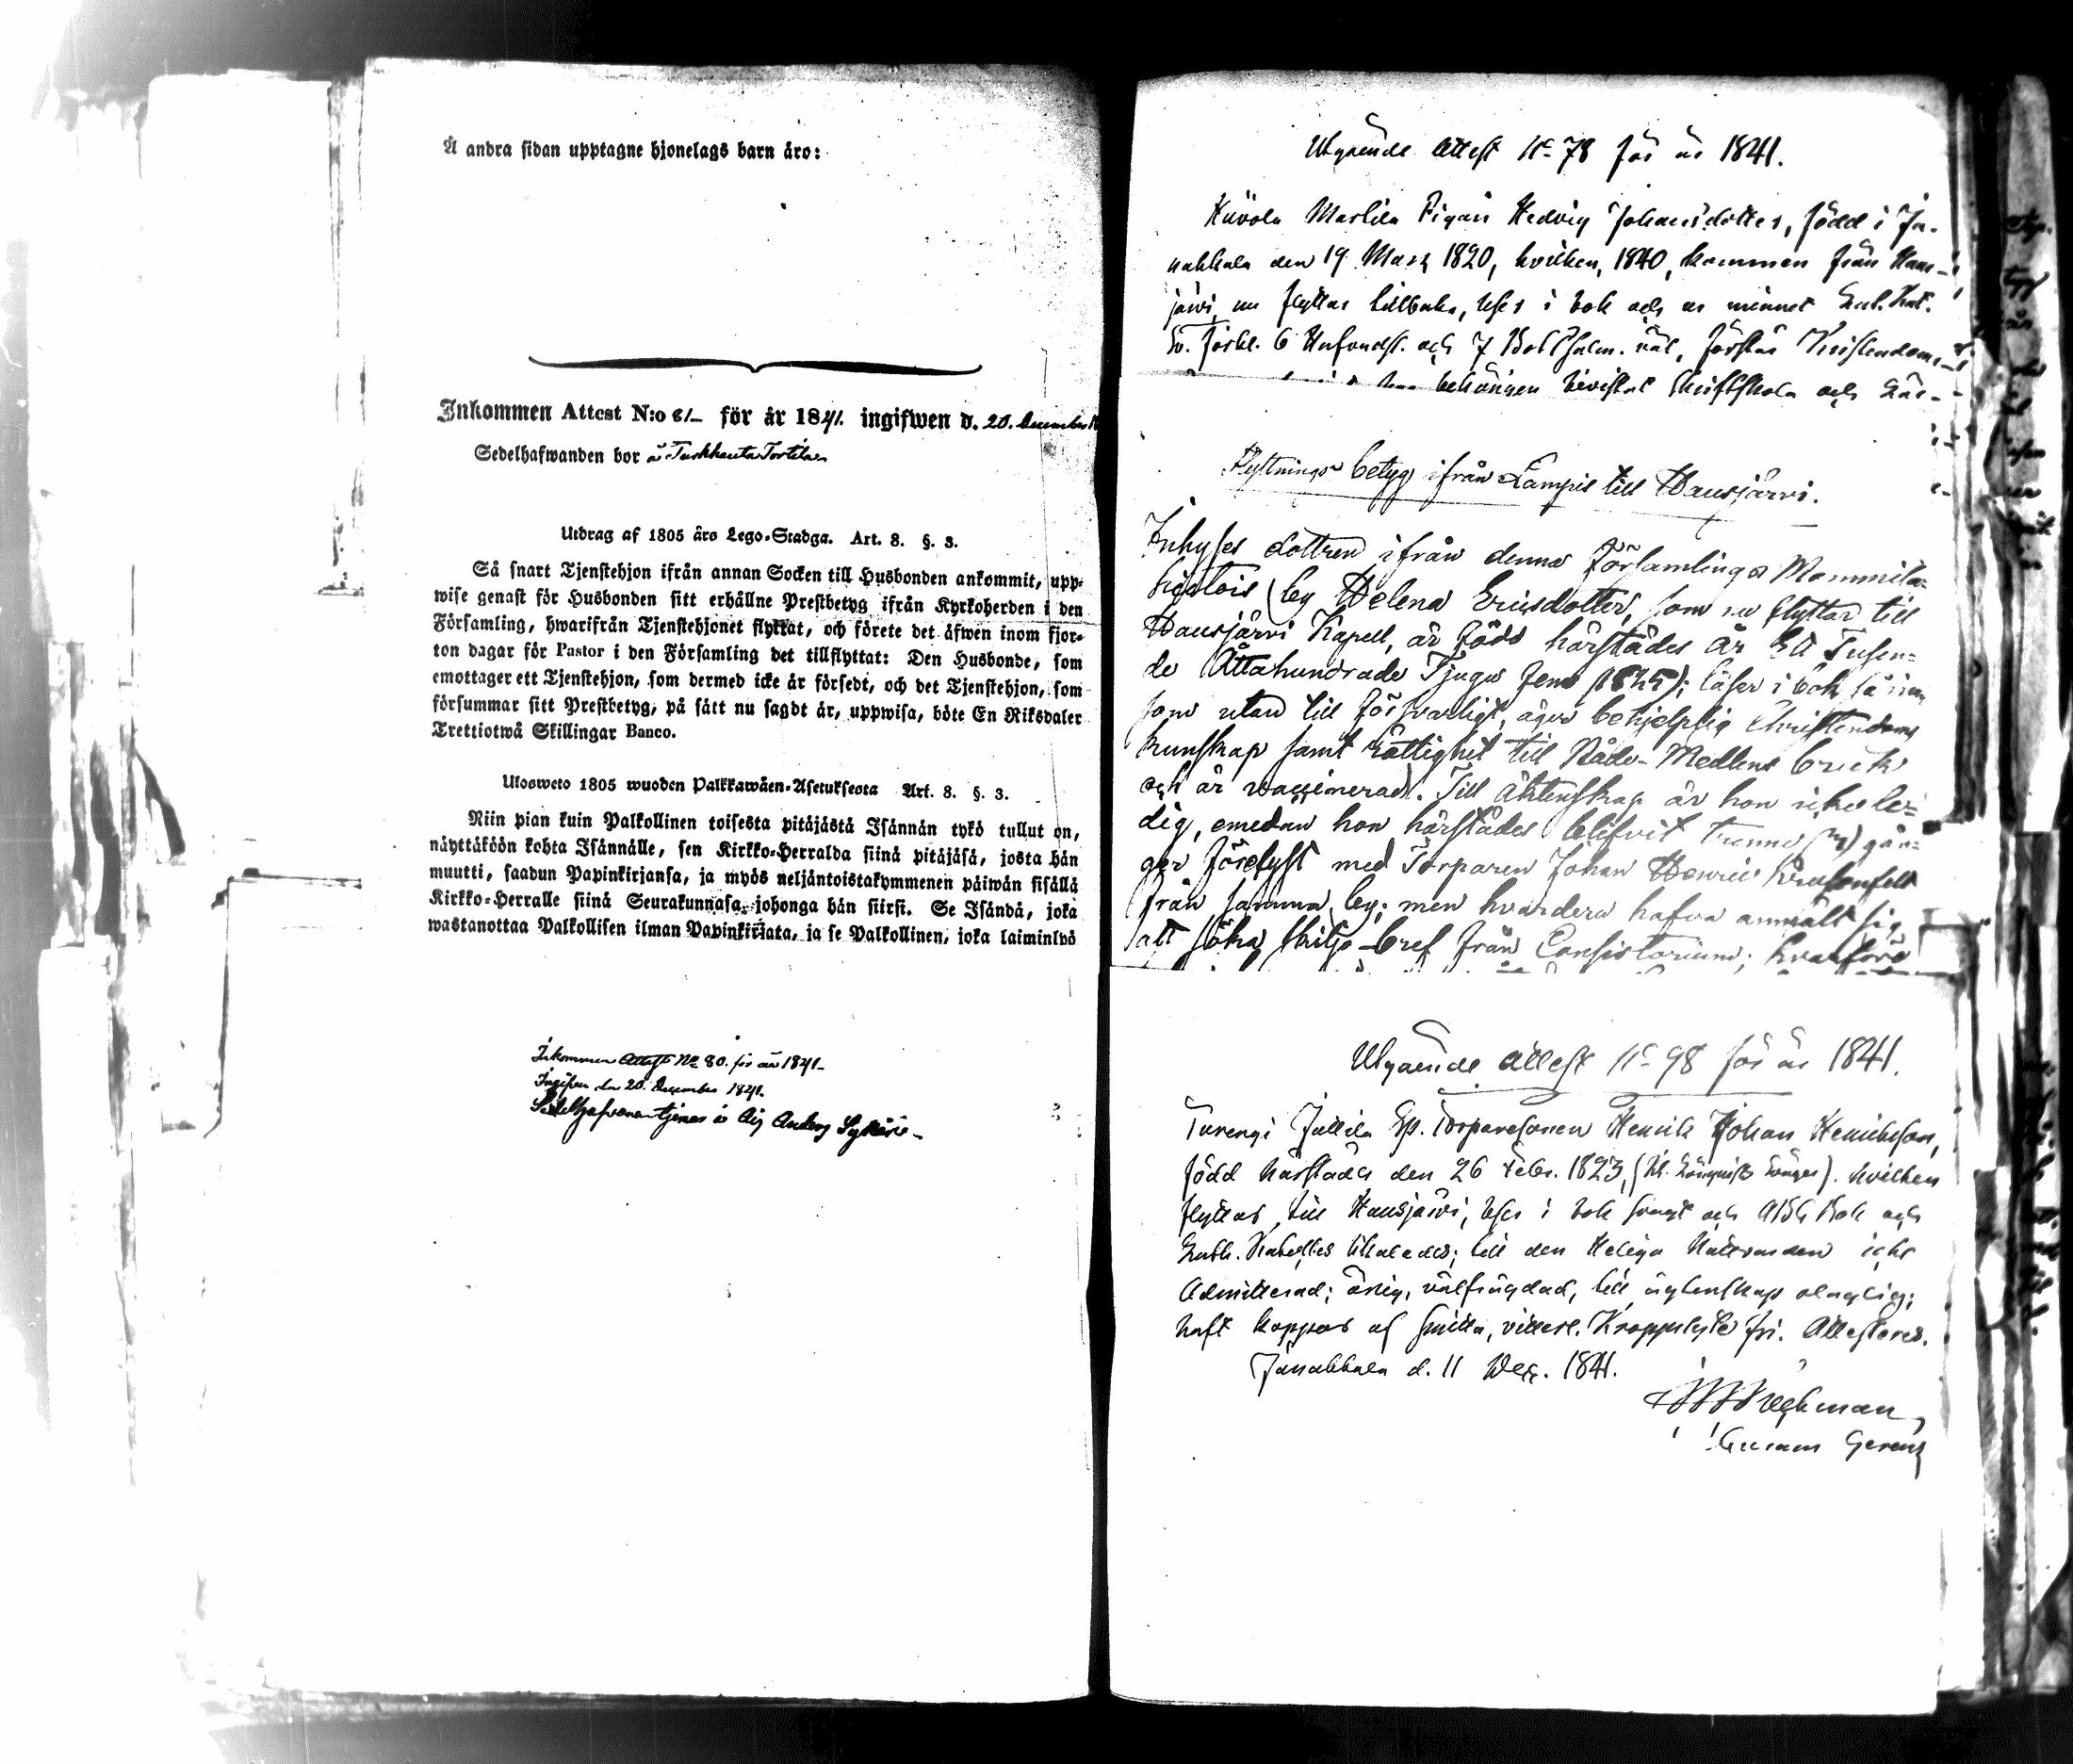 Å andra sidan upptagne hjonelags barn äro:
Inkommen Attest N:o 81 för år 1841. ingifwen d. 20. December
Sedelhafwanden bor å Turkhauta Torttila
Utdrag af 1805 års Lego-Stadga. Art. 8. §. 3.
Så snart Tjenstehjon ifrån annan Socken till Husbonden ankommit, upp-
wise genast för Husbonden sitt erhållne Prestbetyg ifrån Kyrkoherden i den
Församling, hwarifrån Tjenstehjonet flyttat, och förete det äfwen inom fjor-
ton dagar för Pastor i den Församling det tillflyttat: Den Husbonde, som
emottager ett Tjenstehjon, som dermed icke är försedt, och det Tjenstehjon, som
försummar sitt Prestbetyg, på sätt nu sagdt är, uppwisa, böte En Riksdaler
Trettiotwå Skillingar Banco.
Ulosweto 1805 wuoden Palkkawäen-Asetuksesta Art. 8. §. 3.
Niin pian kuin Palkollinen toisesta pitäjästä Isännän tykö tullut on,
näyttäköön kohta Isännälle, sen Kirkko-Herralda siinä pitäjäsä, josta hän
muutti, saadun Papinkirjansa, ja myös neljäntoistakymmenen päiwän sisällä
Kirkko-Herralle siinä Seurakunnasa, johonga hän siirsi. Se Isändä, joka
wastanottaa Palkollisen ilman Papinkirjata, ja se Palkollinen, joka laiminlyö
Inkommen Attest No 80. för år 1841.
Ingifven den 20. December 1841.
Sedelhafvaren tjenar å Anders
Utgående Attest No 78 för år 1841.
Marlila Pigan Hedvig Johansdotter, född i Ja-
nakkala den 19 Mars 1820, hvilken, 1840, kommen från Haus-
järvi, nu flyttar tillbaka, läser i bok och ur minnet Luth. Kat.
Sv. Förkl. 6 Hufvudst. och 7 Bot Psalm. väl, förstår Christendoms-
behörigen bivistat Skriftskola och
Flyttnings betyg ifrån Lampis till Hausjärvi.
Inhyses dottren ifrån denna Församlings Mommila
by Helena Ericsdotter, som nu flyttar till
Hausjärvi Kapell, är född härstädes år Ett Tusen-
de Åttahundrade Tjugu Fem (1825); läser i bok så
som utan till försvarligt, äger behjelplig Christendoms
kunskap samt rättighet till Nåde-Medlens bruk
och är vaccinerad. Till äktenskap är hon icke le-
dig, emedan hon härstädes blifvit trenne gån-
ger förelyst med Torparen Johan Henric
från samma by; men hvardera hafva anmält sig
att söka skiljo-bref från Consistorium; hvarföre
Utgående Attest No 98 för år 1841.
Turengi Juttila Sp. Torparesonen Henrik Johan Henriksson,
född härstädes den 26 Febr. 1823, hvilken
flyttar till Hausjärvi, läser i bok svagt och ABC Bok och
Luth. Kateches likaledes; till den Heliga Nattvarden icke
Admitterad; ärlig, välfrägdad, till äktenskap oduglig;
haft koppor af smitta, vitterl. Kroppslyte fri. Attesteras.
Janakkala d. 11 Dec. 1841.